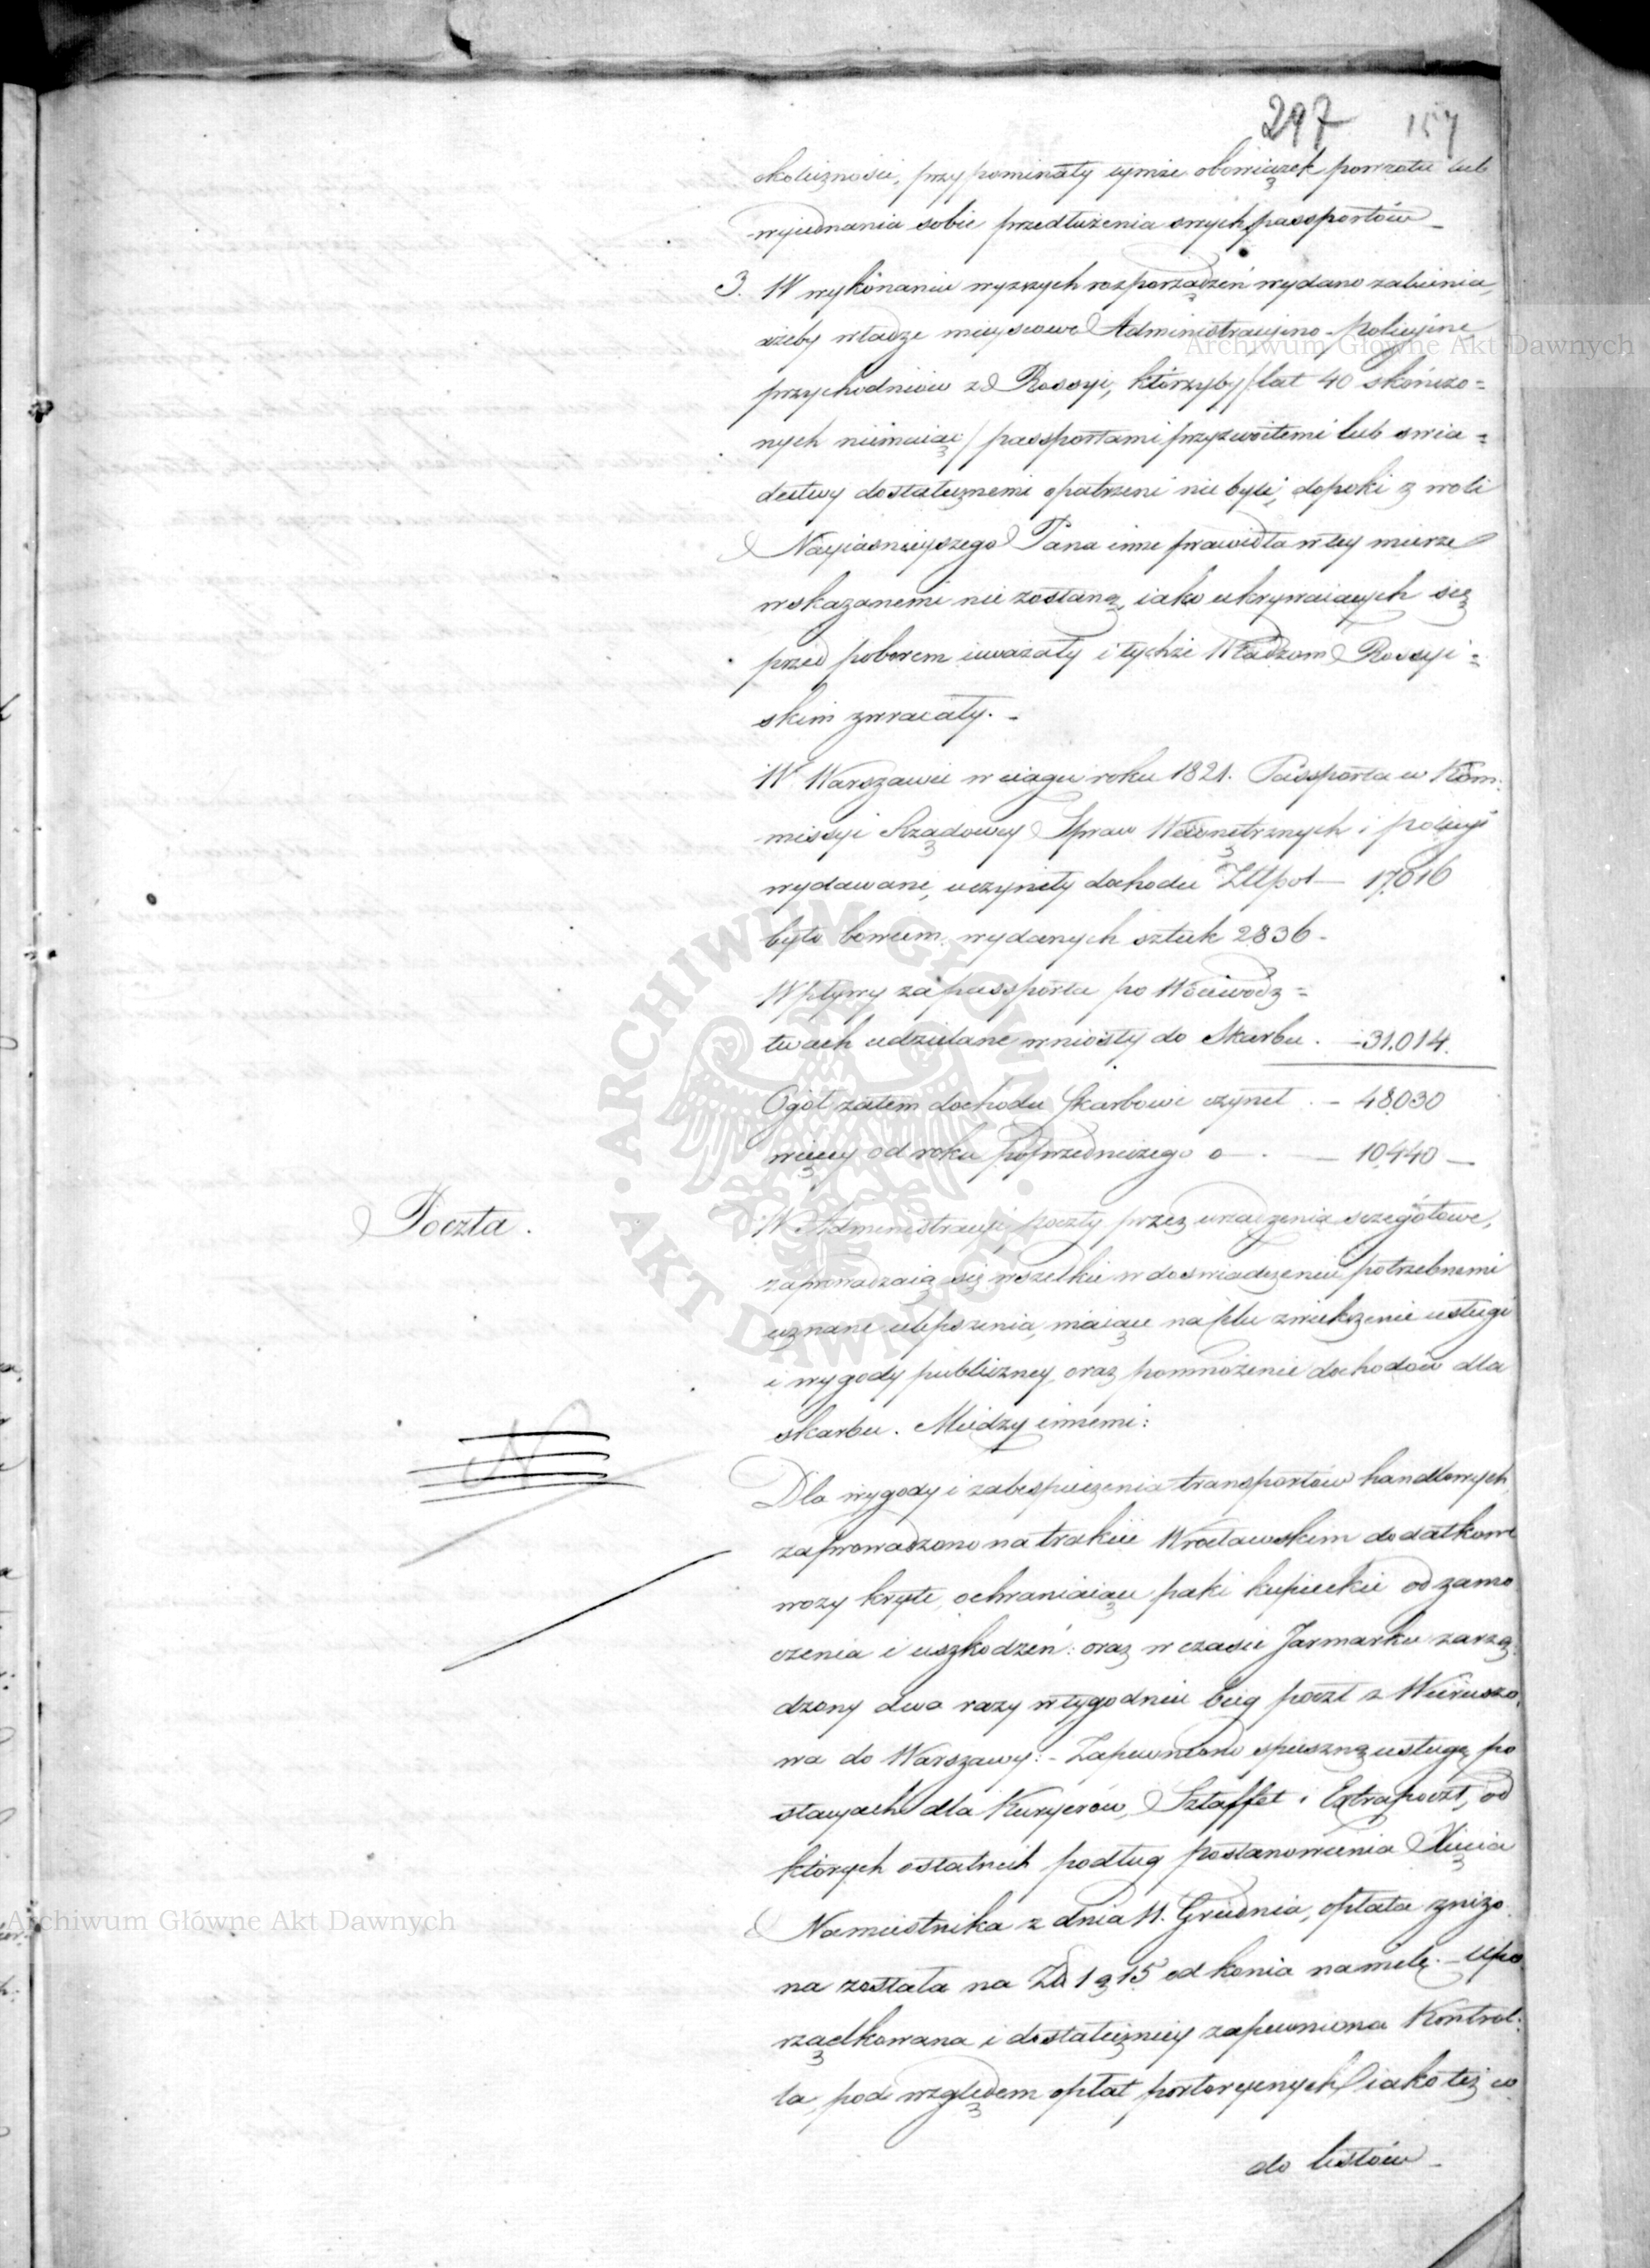 297 157
okoliczności, przypominały tymże obowiązek powrotu lub
wyiednania sobie przedłużenia swych passportów
3. W wykonaniu wyższych rozporządzeń wydano zalecenia,
ażeby władze mieyscowe Administracyino-policyine
przychodniów z Rossyi, którzyby /lat 40 skończo=
nych niemaiąc/ passportami przyzwoitemi lub świa=
dectwy dostatecznemi opatrzeni nie byli, dopóki z woli
Nayiaśnieyszego Pana inne prawidła w tey mierze
wskazanemi nie zostaną, iako ukrywaiących się
przed poborem uważały i tychże Władzom Rossyi=
skim zwracały.
W Warszawie w ciągu roku 1821. Passporta w Kom=
missyi Rządowey Spraw Wewnętrznych i policyi
wydawane, uczyniły dochodu Złlpol — 17,016
było bowiem wydanych sztuk 2836 -
Wpływy za passporta po Woiewódz=
twach udzielane wniosły do Skarbu . - 31.014.
Ogół zatem dochodu Skarbowi czynił . - 48030
więcey od roku poprzedniczego o — . — 10,440 —
Poczta.
W Administracyi poczty przez urządzenia szczegółowe,
zaprowadzaią się wszelkie w doświadczeniu potrzebnemi
uznane ulepszenia, maiące na celu zwiększenie usługi
i wygody publiczney, oraz pomnożenie dochodów dla
skarbu. Miedzy innemi:
Dla wygody i zabespieczenia transportów handlowych
zaprowadzono na trakcie Wrocławskim dodatkowe
wozy kryte, ochraniaiące paki kupieckie od zamo
czenia i uszkodzeń: oraz w czasie Jarmarku zarzą=
dzony dwa razy w tygodniu bieg poczt z Wieruszo=
wa do Warszawy: - Zapewniono spieszną usługę po
stacyach dla Kuryerów, Sztaffet i Extrapoczt, od
których ostatnich podług postanowienia Xięcia
Namiestnika z dnia 11. Grudnia, opłata zniżo
na została na Zł 1 g 15 od konia na milę. - Upo
rządkowana i dostateczniey zapewniona Kontrol=
la, pod względem opłat portoryinych iako też co
do listów -
Archiwum Główne Akt Dawnych
Archiwum Główne Akt Dawnych
ARCHIWUM GŁÓWNE · AKT DAWNYCH ·